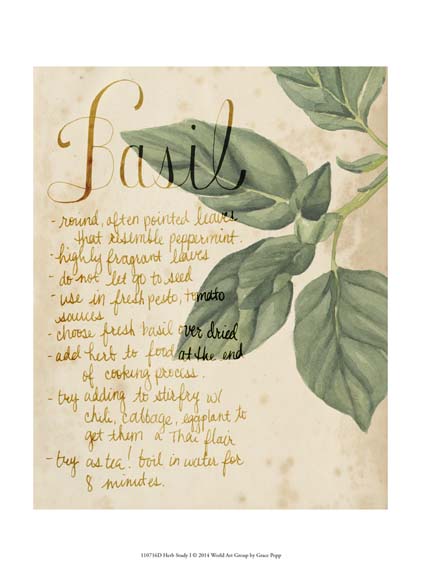 Basil
- round, often pointed leaves
that resemble peppermint.
- highly fragrant leaves
- do not let go to seed
- use in fresh pesto, tomato
sauces
- choose fresh basil over dried
- add herb to food at the end
of cooking process.
- try adding to stirfry w/
chili, cabbage, eggplant to
get them a Thai flair
- try as tea! boil in water for
8 minutes.
110716D Herb Study I © 2014 World Art Group by Grace Popp